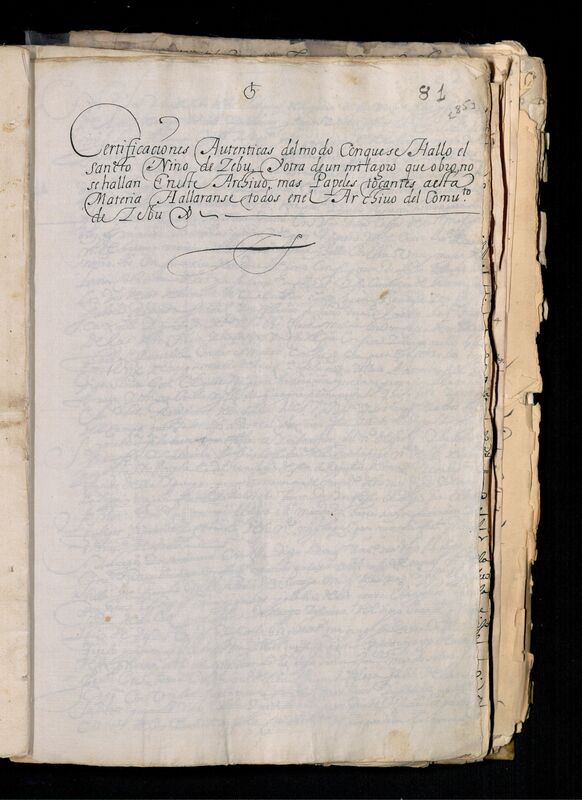 81
Certificaciones Autenticas del modo Conquese Hallo el
sancto Nino de Zebu, Yotra deun milagro que obro, no
se hallan En este Archivo, mas Papeles tocantes, aesta
Materia Hallaranse todos enel Archivo del Comuto.
de Zebu